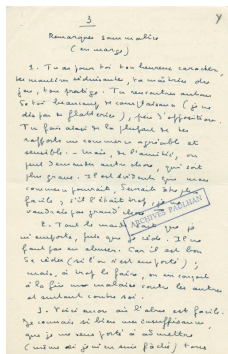 3
Remarques sans malice
(en marge)
1. Tu as pour toi ton heureux caractère,
tes manières séduisantes, ta maîtrise des
jeux, ton prestige. Tu rencontres autour
de toi beaucoup de complaisance (je ne
dis pas de flatterie), peu d'opposition.
Tu fais ainsi de la plupart de tes
rapports un commerce agréable et
sensible. Mais de l'amitié, on
peut demander autre chose, qui soit
plus grave. Il est évident que mon
commerce pourrait, devrait être plus
facile ; s'il l'était trop, je ne
vaudrais pas grand'chose.
ARCHIVES PAULHAN
2. Tout le monde sait que je
m'emporte, puis que je cède. Il ne
faut pas en abuser. Car il est bon
de céder (si l'on s'est emporté),
mais, à trop le faire, on en conçoit
à la fin une malaise contre les autres
et surtout contre soi.
3. Voici encore où l'abus est facile.
Je connais si bien mon insuffisance
que je me sens porté à admettre
(même si j'en suis fâché) tous